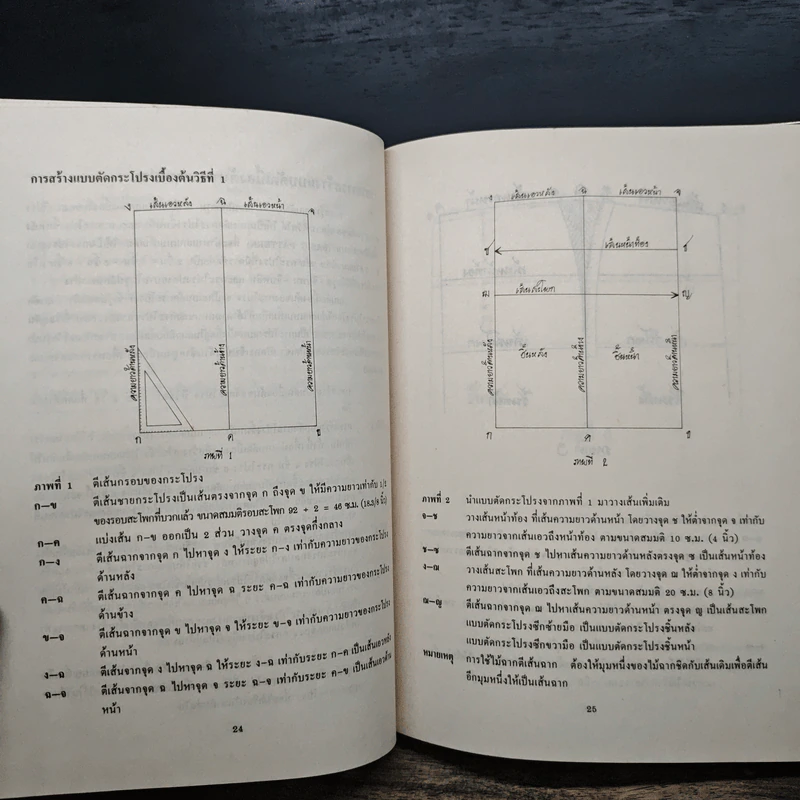 การสร้างแบบตัดกระโปรงเบื้องต้นวิธีที่ 1
ง เส้นเอวหลัง ฉ เส้นเอวหน้า จ
ความยาวด้านหลัง ความยาวด้านข้าง ความยาวด้านหน้า
ก ค ข
ภาพที่ 1
ภาพที่ 1 ตีเส้นกรอบของกระโปรง
ก–ข ตีเส้นชายกระโปรงเป็นเส้นตรงจากจุด ก ถึงจุด ข ให้มีความยาวเท่ากับ 1/2
ของรอบสะโพกที่บวกแล้ว ขนาดสมมติรอบสะโพก 92 ÷ 2 = 46 ซ.ม. (18.3/8 นิ้ว)
ก–ค แบ่งเส้น ก–ข ออกเป็น 2 ส่วน วางจุด ค ตรงจุดกึ่งกลาง
ก–ง ตีเส้นฉากจากจุด ก ไปหาจุด ง ให้ระยะ ก–ง เท่ากับความยาวของกระโปรง
ด้านหลัง
ค–ฉ ตีเส้นฉากจากจุด ค ไปหาจุด ฉ ระยะ ค–ฉ เท่ากับความยาวของกระโปรง
ด้านข้าง
ข–จ ตีเส้นฉากจากจุด ข ไปหาจุด จ ให้ระยะ ข–จ เท่ากับความยาวของกระโปรง
ด้านหน้า
ง–ฉ ตีเส้นจากจุด ง ไปหาจุด ฉ ให้ระยะ ง–ฉ เท่ากับระยะ ก–ค เป็นเส้นเอวหลัง
ฉ–จ ตีเส้นจากจุด ฉ ไปหาจุด จ ระยะ ฉ–จ เท่ากับระยะ ค–ข เป็นเส้นเอวด้าน
หน้า
24
ง เส้นเอวหลัง ฉ เส้นเอวหน้า จ
ซ เส้นหน้าท้อง ช
ฌ เส้นสะโพก ญ
ความยาวด้านหลัง ชิ้นหลัง ความยาวด้านข้าง ชิ้นหน้า ความยาวด้านหน้า
ก ค ข
ภาพที่ 2
ภาพที่ 2 นำแบบตัดกระโปรงจากภาพที่ 1 มาวางเส้นเพิ่มเติม
จ–ช วางเส้นหน้าท้อง ที่เส้นความยาวด้านหน้า โดยวางจุด ช ให้ต่ำจากจุด จ เท่ากับ
ความยาวจากเส้นเอวถึงหน้าท้อง ตามขนาดสมมติ 10 ซ.ม. (4 นิ้ว)
ช–ซ ตีเส้นฉากจากจุด ช ไปหาเส้นความยาวด้านหลังตรงจุด ซ เป็นเส้นหน้าท้อง
ง–ฌ วางเส้นสะโพก ที่เส้นความยาวด้านหลัง โดยวางจุด ฌ ให้ต่ำจากจุด ง เท่ากับ
ความยาวจากเส้นเอวถึงสะโพก ตามขนาดสมมติ 20 ซ.ม. (8 นิ้ว)
ฌ–ญ ตีเส้นฉากจากจุด ฌ ไปหาเส้นความยาวด้านหน้า ตรงจุด ญ เป็นเส้นสะโพก
แบบตัดกระโปรงซีกซ้ายมือ เป็นแบบตัดกระโปรงชิ้นหลัง
แบบตัดกระโปรงซีกขวามือ เป็นแบบตัดกระโปรงชิ้นหน้า
หมายเหตุ การใช้ไม้ฉากตีเส้นฉาก ต้องให้มุมหนึ่งของไม้ฉากชิดกับเส้นเดิมเพื่อตีเส้น
อีกมุมหนึ่งให้เป็นเส้นฉาก
25